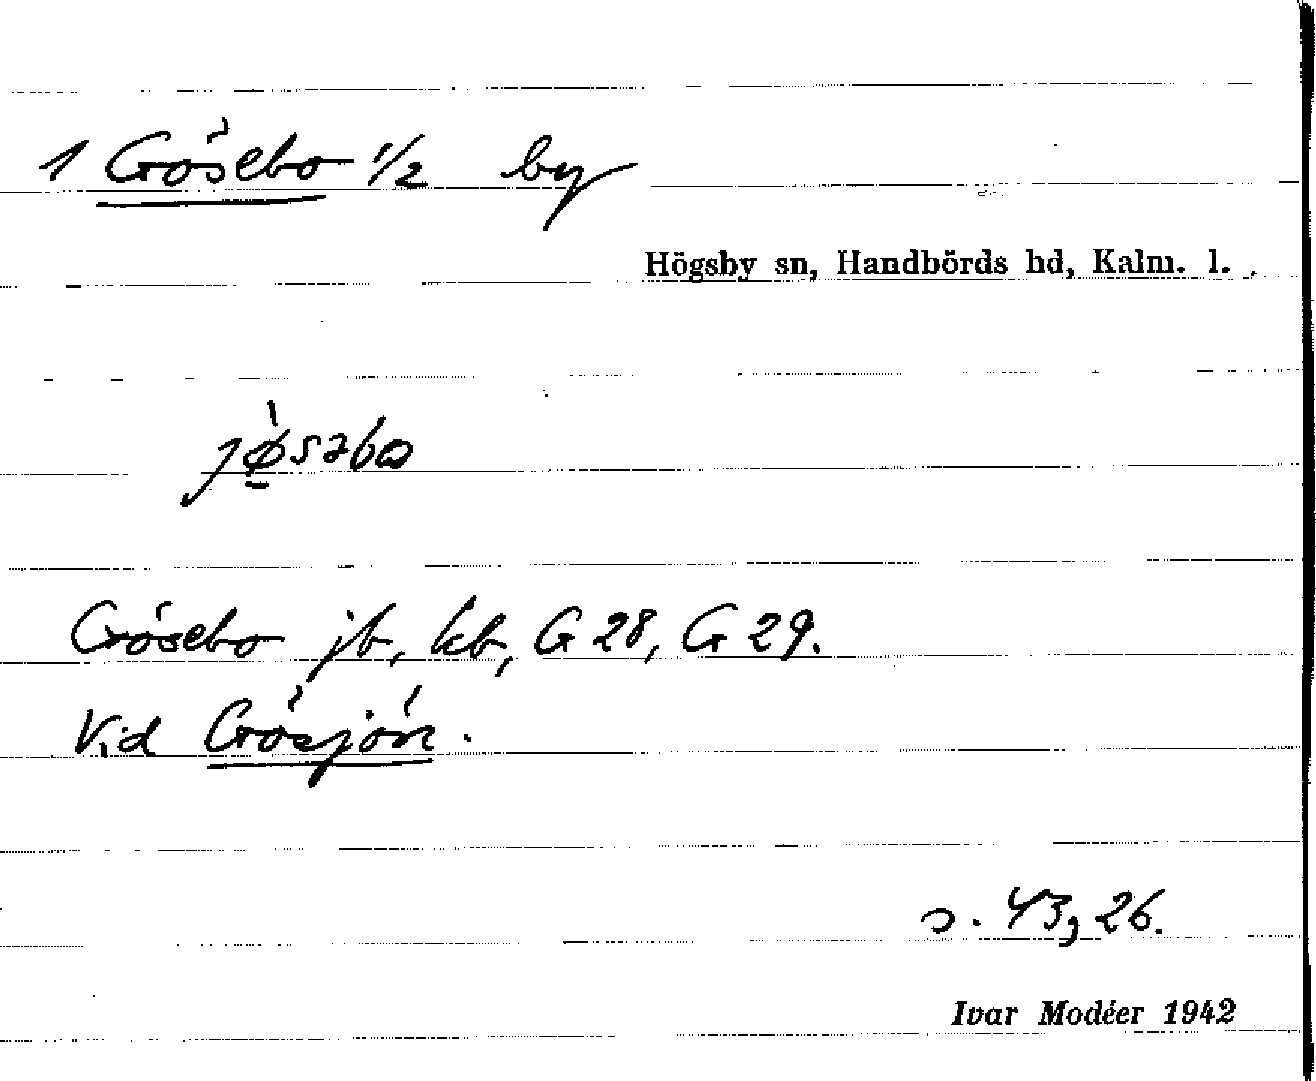 1 Gösebo 1/2 by
Högsby sn, Handbörds hd, Kalm. l.
jø̀səbo
Gösebo jb, kb, G 28, G 29.
Vid Gösjön.
s. 43, 26.
Ivar Modéer 1942